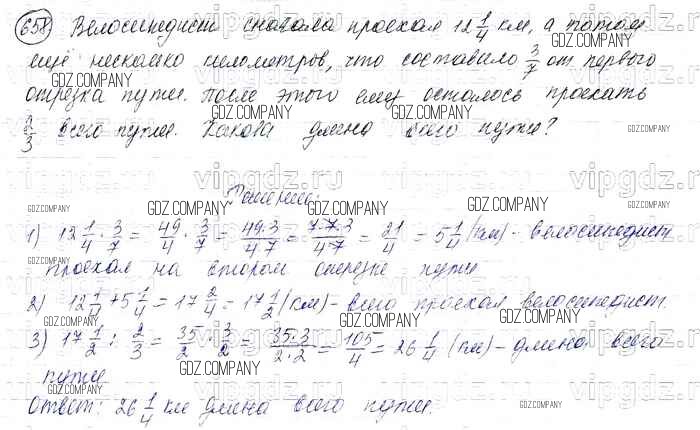 658 Велосипедист сначала проехал 12 1/4 км, а потом
ещё несколько километров, что составило 3/7 от первого
отрезка пути. После этого ему осталось проехать
всего пути. Какова длина всего пути?
Решение:
1) 12 1/4 · 3/7 = 49/4 · 3/7 = 49·3/4·7 = 7·7·3/4·7 = 21/4 = 5 1/4 (км) - велосипедист
проехал на втором отрезке пути
2) 12 1/4 + 5 1/4 = 17 2/4 = 17 1/2 (км) - всего проехал велосипедист.
3) 17 1/2 : 2/3 = 35/2 · 3/2 = 35·3/2·2 = 105/4 = 26 1/4 (км) - длина всего
пути
Ответ: 26 1/4 км длина всего пути.
GDZ.COMPANY
vipgdz.ru